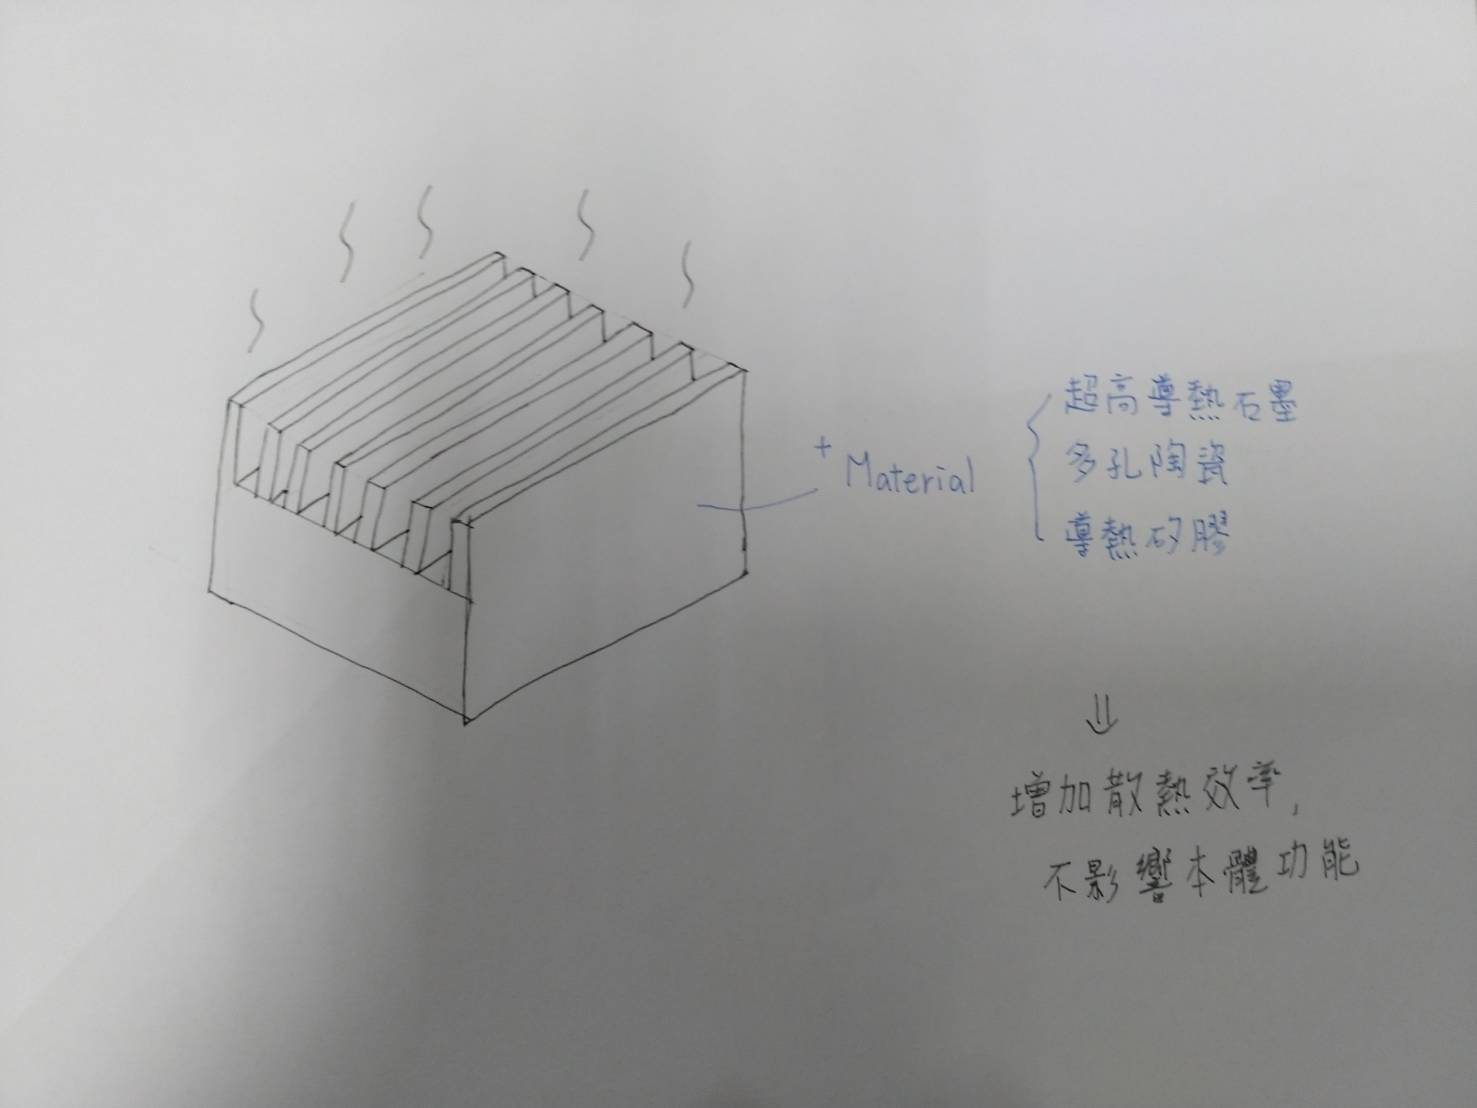 + Material
超高導熱石墨
多孔陶瓷
導熱矽膠
增加散熱效率,
不影響本體功能